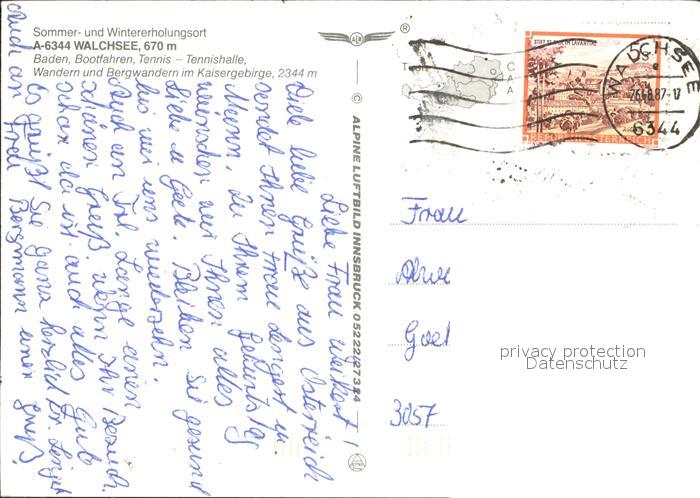 Sommer- und Wintererholungsort
A-6344 WALCHSEE, 670 m
Baden, Bootfahren, Tennis – Tennishalle,
Wandern und Bergwandern im Kaisergebirge, 2344 m
®
© ALPINE LUFTBILD INNSBRUCK 05222/27324
STIFT ST. PAUL IM LAVANTTAL
REPUBLIK ÖSTERREICH
WALCHSEE
26.-8.87-17
6344
Liebe Frau !
Viele liebe Grüße aus Österreich
sendet Ihnen Frau u.
Mann. Zu Ihrem Geburtstag
wünschen wir Ihnen alles
Liebe u Gute. Bleiben Sie gesund
bis wir uns wiedersehn.
Auch an Frl. Lange einen
schönen Gruß. wenn Ihr Besuch
schon da ist auch alles Gute
Es grüßt Sie ganz herzlich
auch an Frau Bergmann einen Gruß.
Frau
3057
privacy protection
Datenschutz